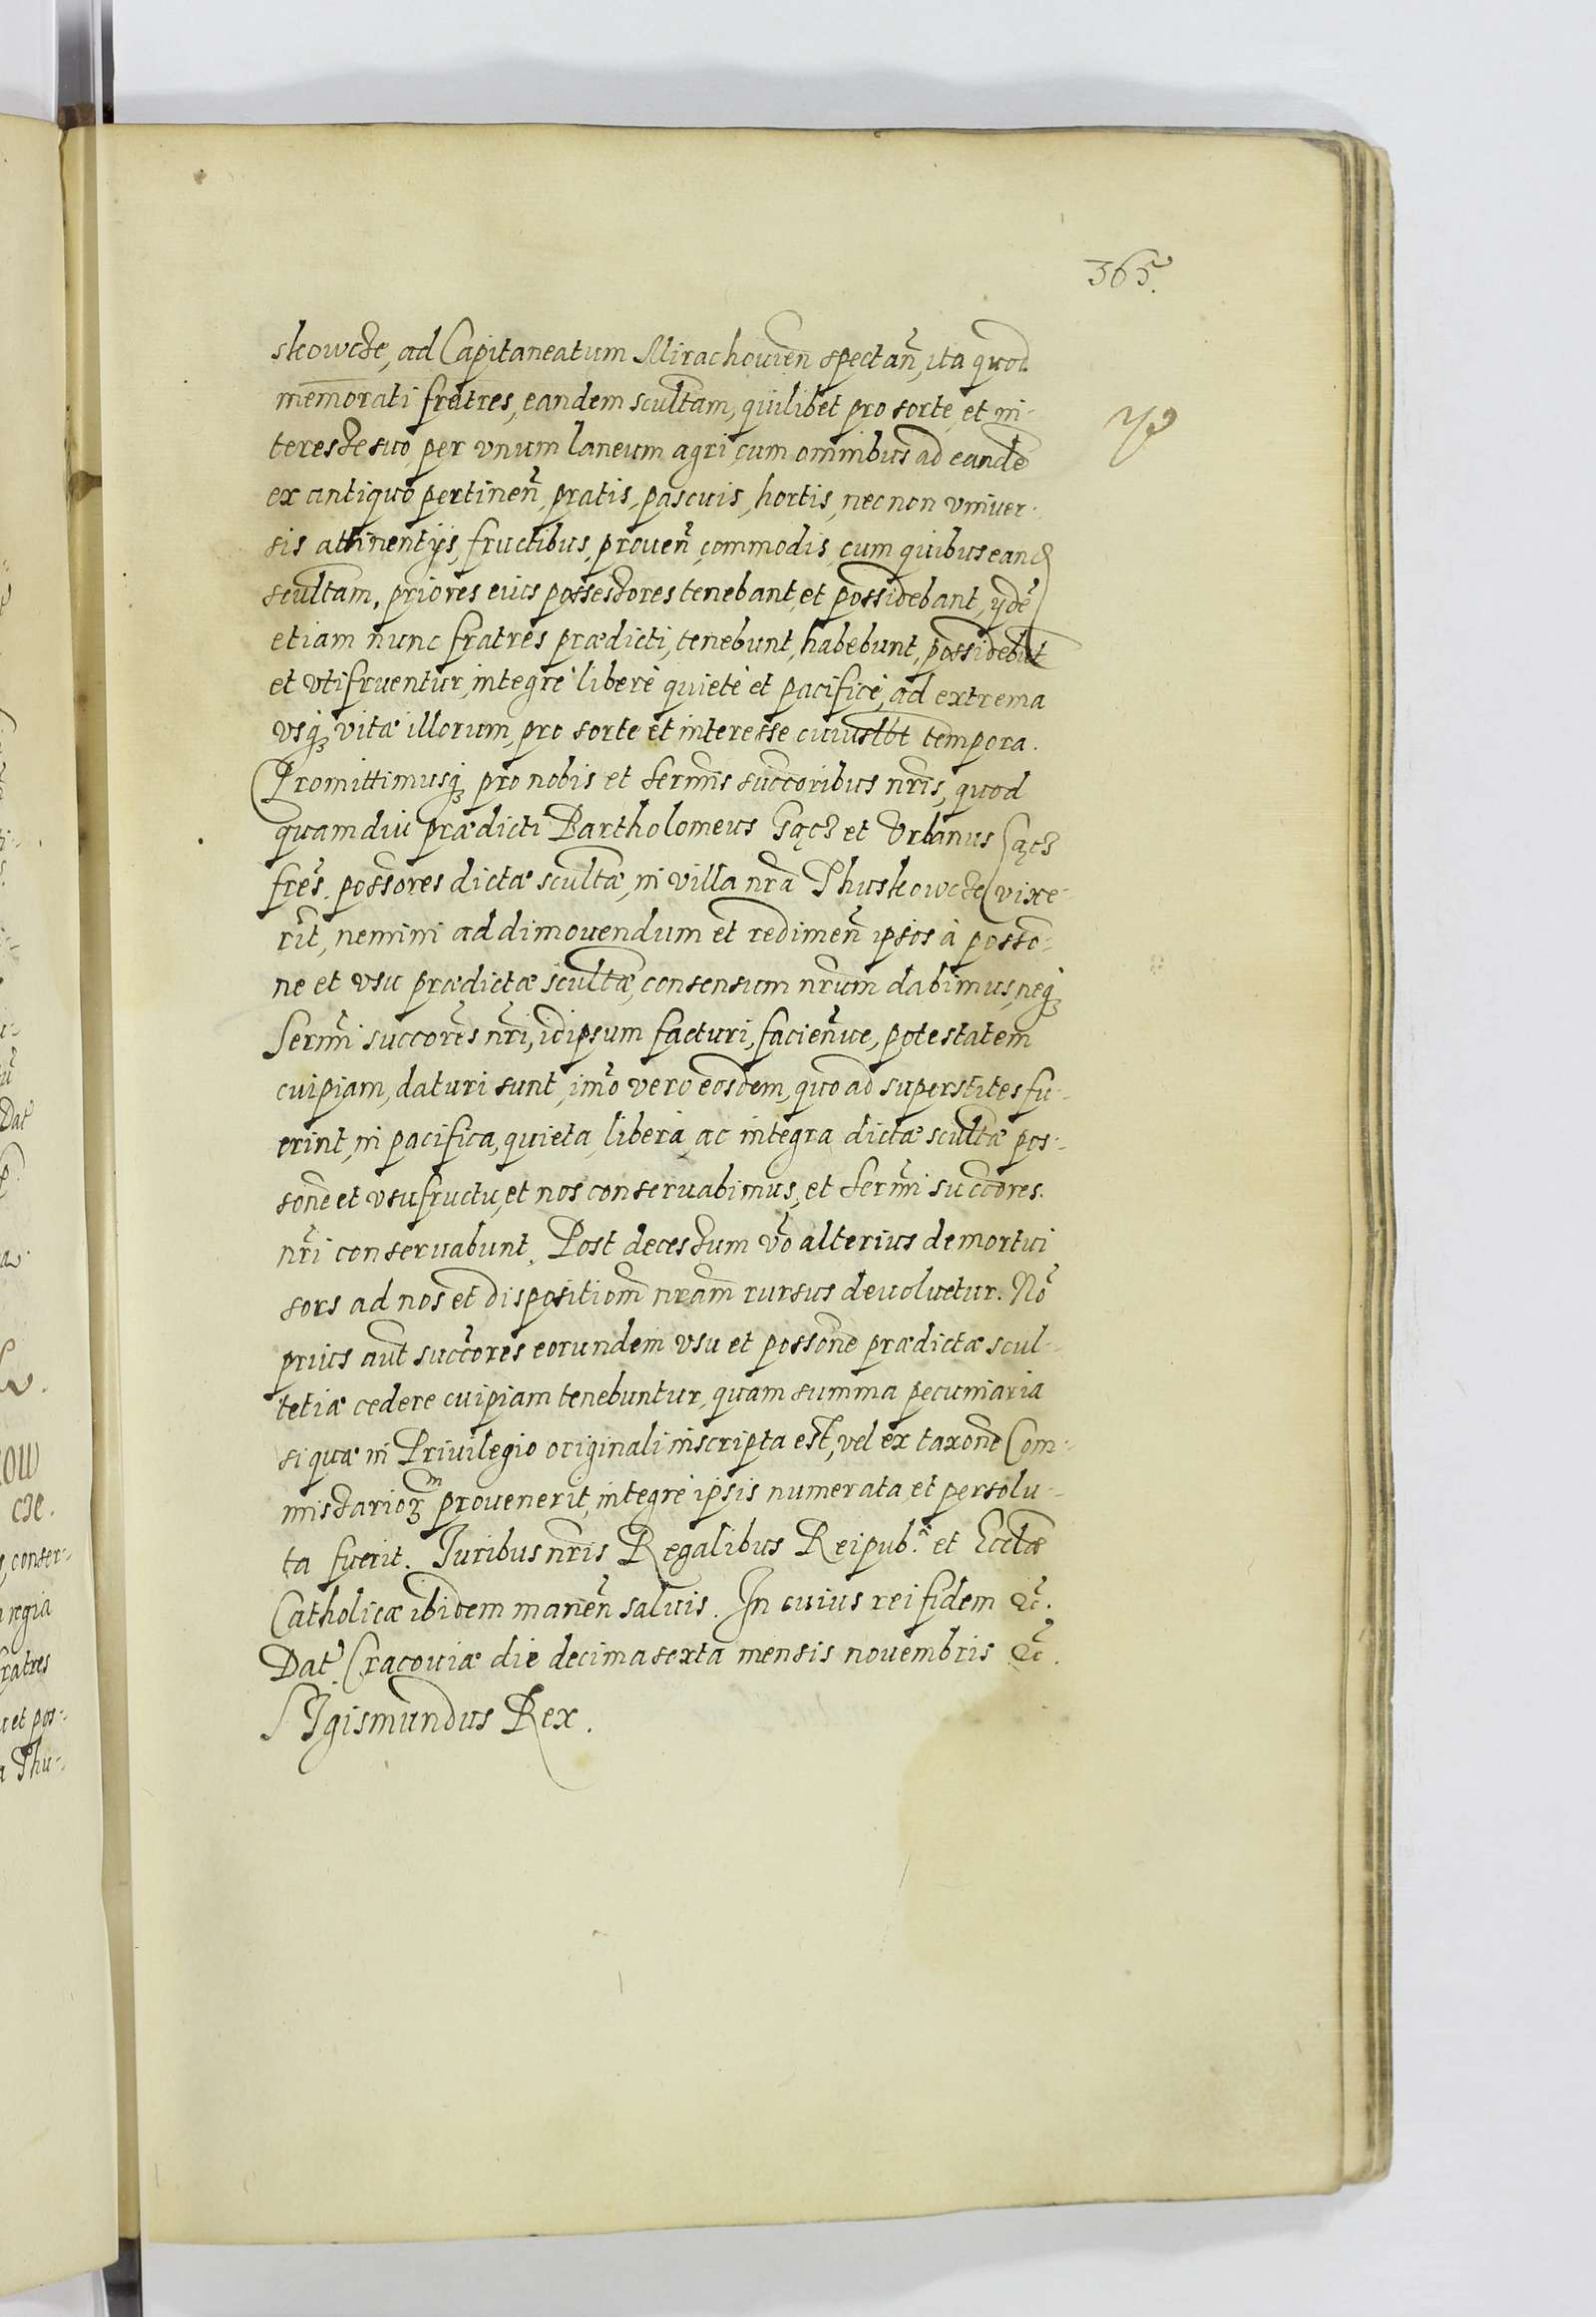 365.
skowcze, ad Capitaneatum Mirachouien̄ spectan̄, ita quod
memorati fratres, eandem scultam, quilibet pro sorte, et in-
teresse suo, per vnum laneum agri, cum omnibus ad eandē
ex antiquo pertinen̄, pratis, pascuis, hortis, nec non vniuer-
sis attinentijs, fructibus, prouen̄, commodis, cum quibus eand
scultam, priores eius possessores tenebant, et possidebant, ijdē
etiam nunc fratres prædicti, tenebunt, habebunt, possidebūt
et vtifruentur, integrè liberè quietè et pacificè, ad extrema
vsq; vitæ illorum, pro sorte et interesse cuiuslbt tempora.
Promittimusq; pro nobis et Sermis succoribus nr̄is, quod
quamdiu prædicti Bartholomeus Gącz et Vrbanus Gącz
frēs, possores dictæ scultæ, in villa nrā Thuskowcze vixe-
rīt, nemini ad dimouendum et redimen̄ ipsos à posso-
ne et vsu prædictæ scultæ, consensum nr̄um dabimus, neq;
Sermi succores nr̄i, idipsum facturi, facien̄ue, potestatem
cuipiam, daturi sunt, imō vero eosdem, quo ad superstites fu-
erint, in pacifica, quieta, libera, ac integra dictæ scultæ pos-
sone et vsufructu, et nos conseruabimus, et Sermi succores
nr̄i conseruabunt. Post decessum vō alterius demortui
sors ad nos et dispositiom nr̄am rursus deuoluetur. Nō
prius aut̄ succores eorundem vsu et possone prædictæ scul-
tetiæ cedere cuipiam tenebuntur, quam summa pecuniaria
si quæ in Priuilegio originali inscripta est, vel ex taxone Com-
missarioꝝ m prouenerit, integrè ipsis numerata et persolu-
ta fuerit. Iuribus nr̄is Regalibus Reipub. et Ecclæ
Catholicæ ibidem manen̄ saluis. In cuius rei fidem &c̄.
Dat Cracouiæ die decimasexta mensis nouembris &c̄.
SIgismundus Rex.